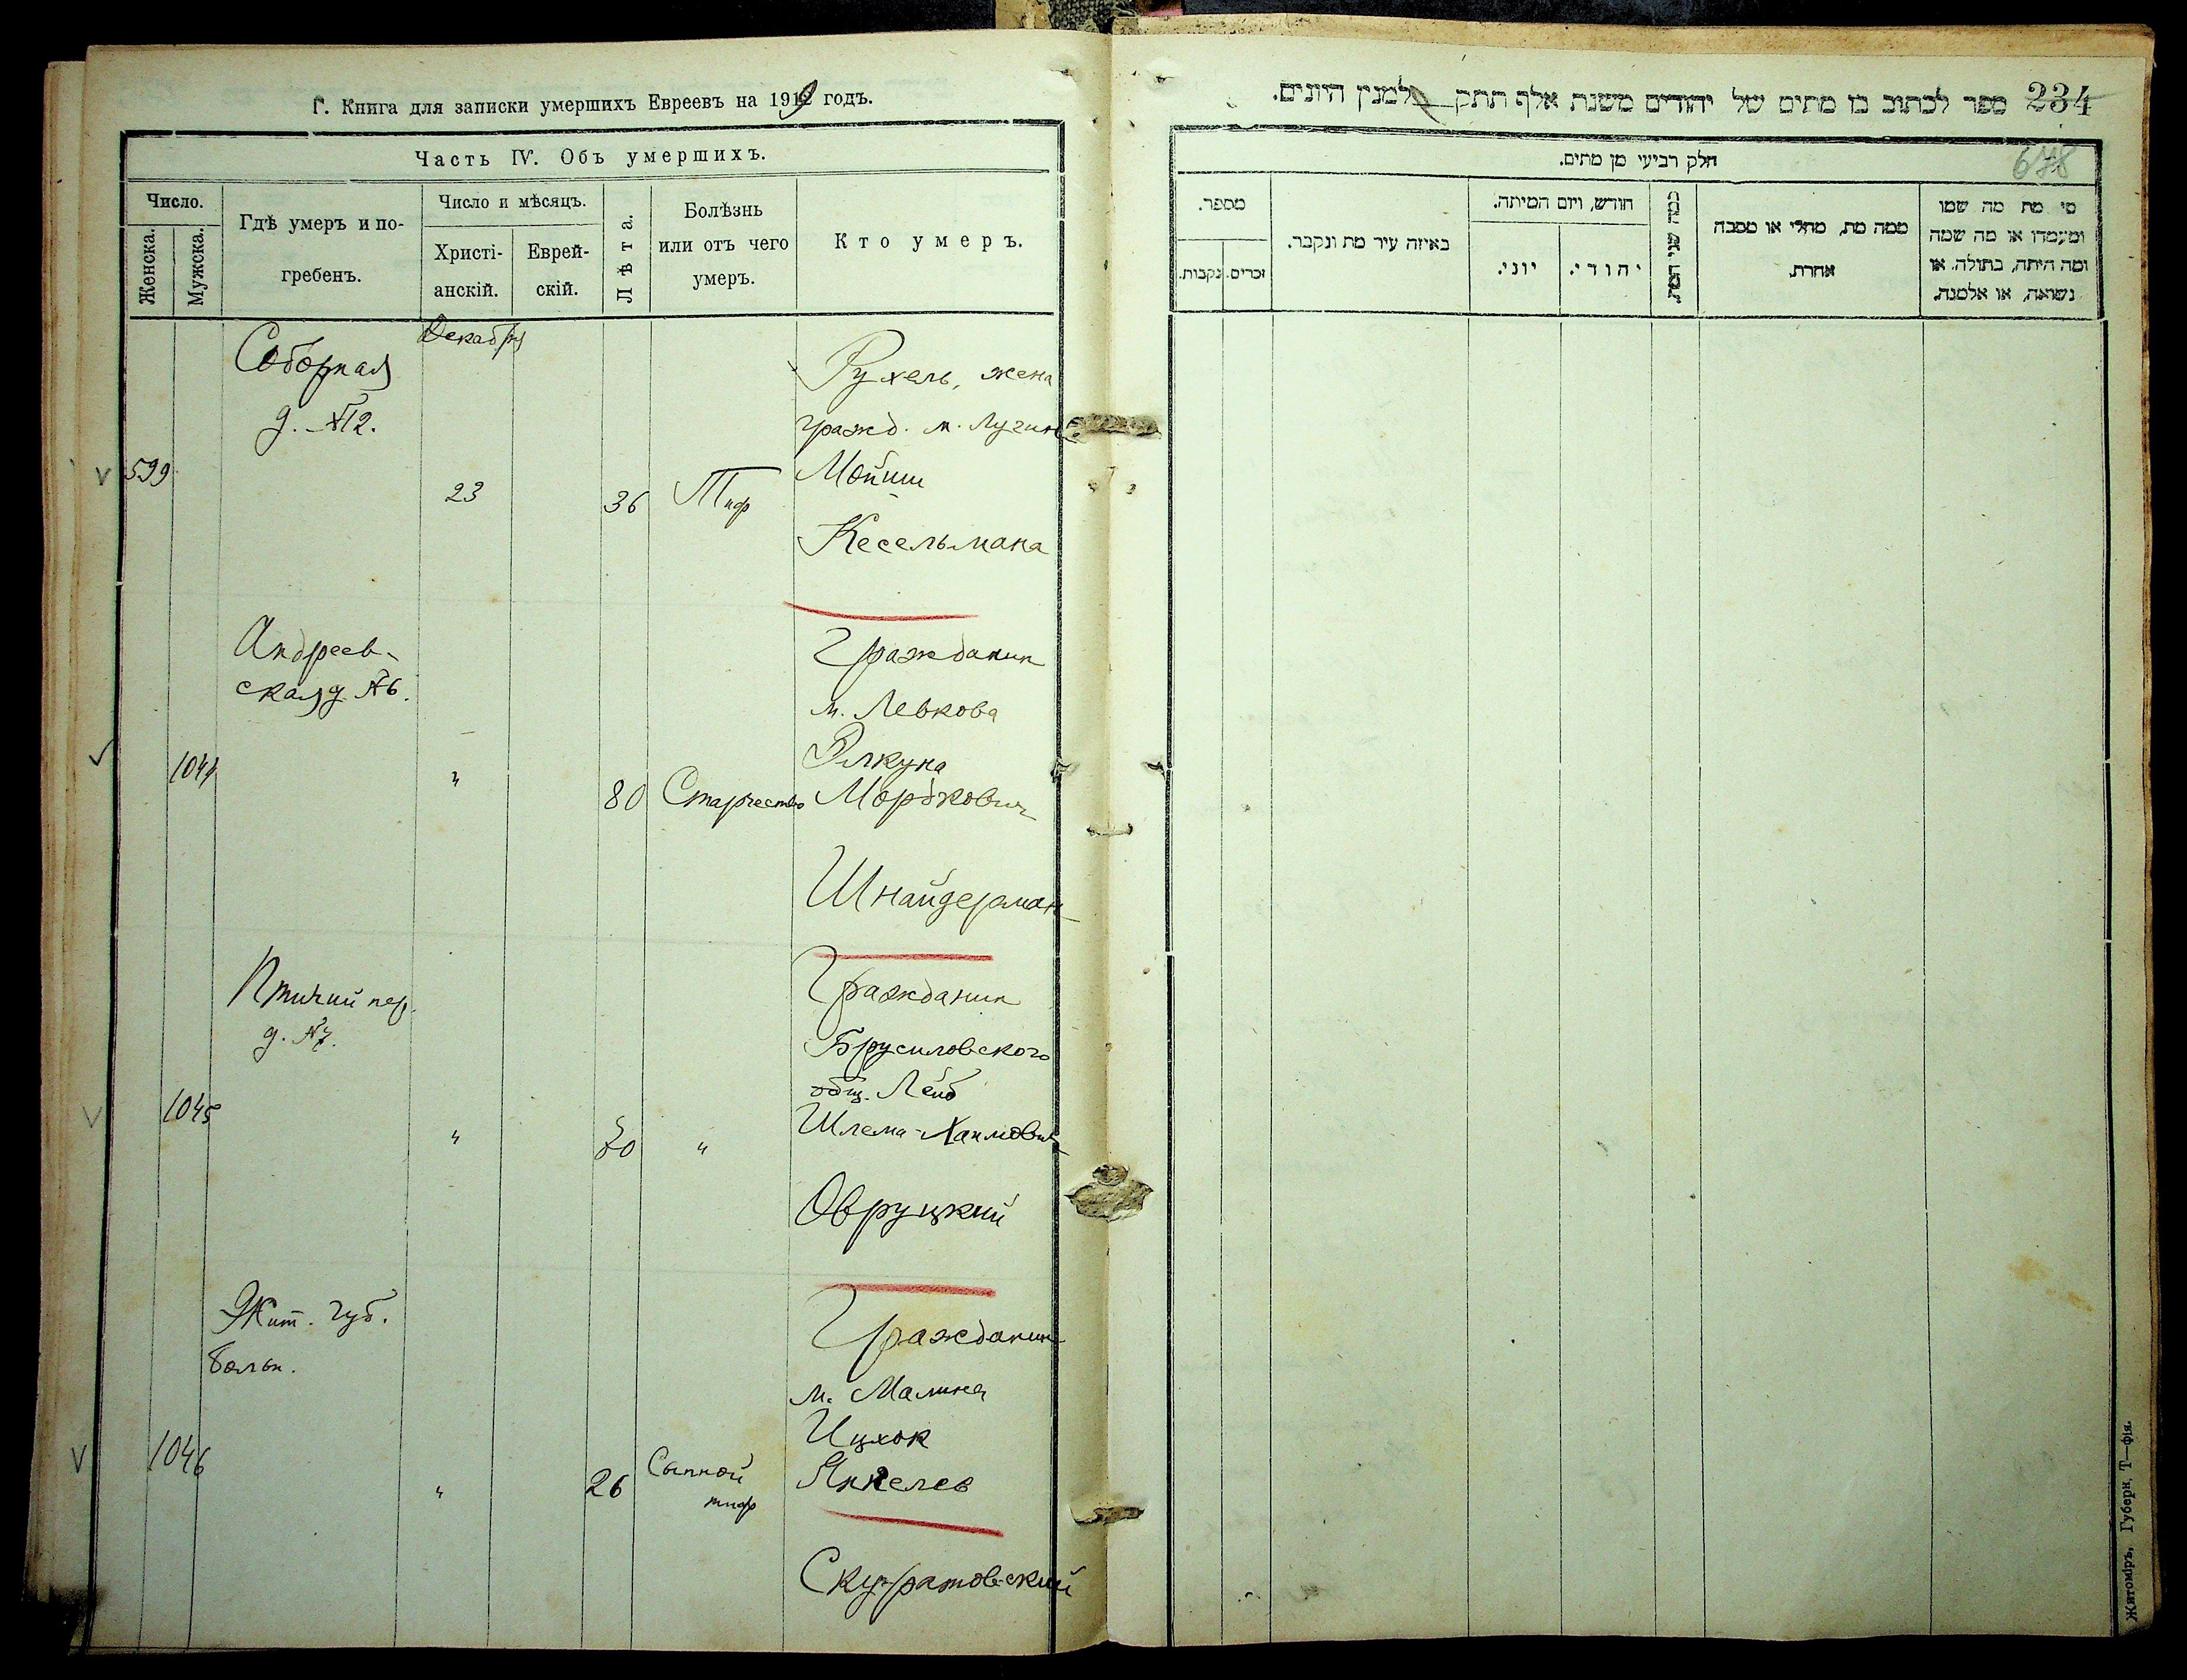 Г. Книга для записки умершихъ Евреевъ на 1919 годъ.
Часть IV. Объ умершихъ.
Число.
Женска.
Мужска.
Гдѣ умеръ и по-
гребенъ.
Число и мѣсяцъ.
Христі-
анскій.
Еврей-
скій.
Лѣта.
Болѣзнь
или отъ чего
умеръ.
Кто умеръ.
Декабря
Соборная
д. №12.
599
23
36
Тиф
Рухель, жена
гражд. м. Лугин
Мойши
Кесельмана
Андреев-
ская д. №6.
1044
"
80
Старчество
Гражданин
м. Левкова
Элкуна
Мордкович
Шнайдерман
Птичий пер.
д. №7.
1045
"
70
"
Гражданин
Брусиловского
общ. Лейб
Шлема-Хаимович
Овруцкий
Жит. губ.
больн.
1046
"
26
Сыпной
тиф
Гражданин
м. Малина
Ицхок
Янкелев
Скуратовский
234
ספר לכתוב בו מתים של יהודים משנת אלף תתק למנין היונים.
678
חלק רביעי מן מתים.
מספר.
נקבות.
זכרים.
באיזה עיר מת ונקבר.
חודש, ויום המיתה.
יוני.
יהודי.
כמה שני המת.
ממה מת, מחלי או מסבה
אחרת.
מי מת מה שמו
ומעמדו או מה שמה
ומה היתה, בתולה, או
נשואה, או אלמנה.
Житоміръ, Губерн. Т—фія.